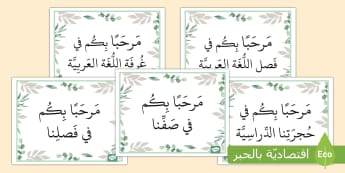 مَرحَبًا بِكُم في
غُرفَة اللُّغَة العَرَبِيَّة
مَرحَبًا بِكُم في
فَصل اللُّغَة العَرَبِيَّة
مَرحَبًا بِكُم
في فَصلِنا
مَرحَبًا بِكُم
في صَفِّنا
مَرحَبًا بِكُم في
حُجرَتِنا الدِّراسِيَّة
اقتصاديّة بالحبر
Eco